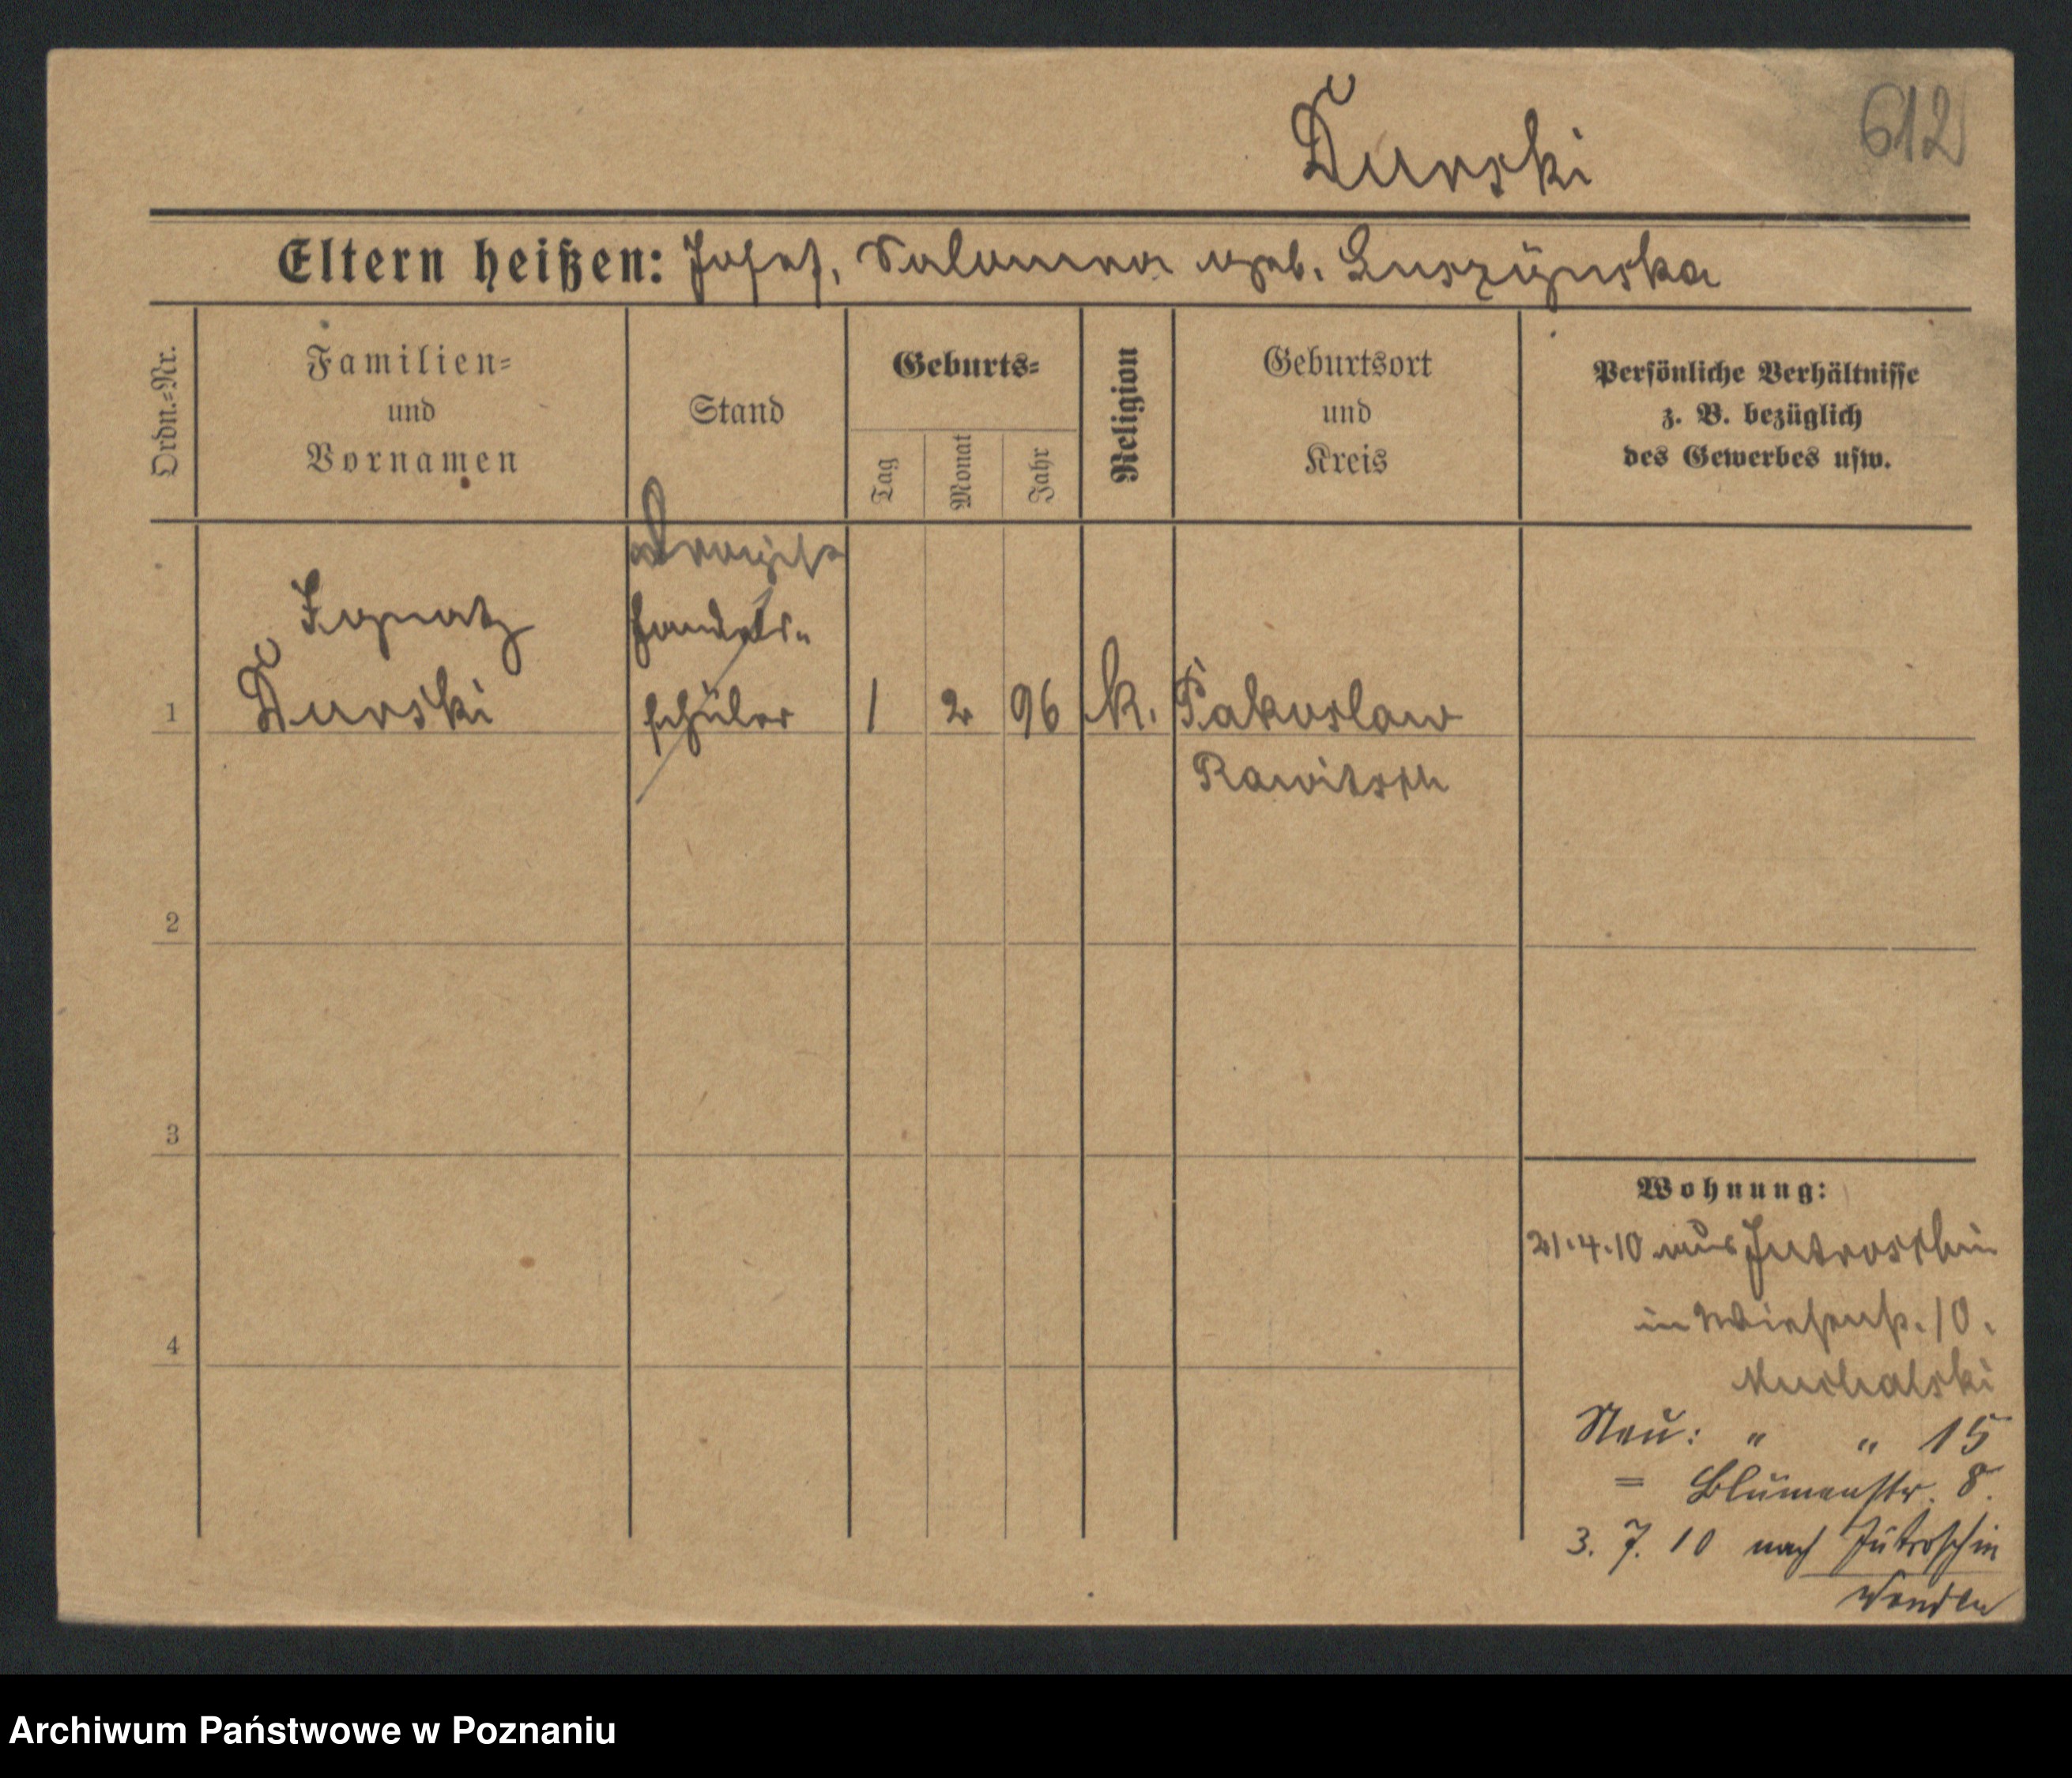 612
Durski
Eltern heißen: Josef, Salomea geb. Luszÿnska
Ordn.=Nr.
Familien=
und
Vornamen
Stand
Geburts=
Tag
Monat
Jahr
Religion
Geburtsort
und
Kreis
Persönliche Verhältnisse
z. B. bezüglich
des Gewerbes usw.
Drogist
Ignatz
Handels-
1 Durski schüler 1 2 96 k. Pakoslaw
Rawitsch
2
3
4
Wohnung:
21.4.10 aus Jutroschin
in Wiesenstr. 10.
Neu: " " 15
= Blumenstr. 8.
3. 7. 10 nach Jutroschin
Wenden
Archiwum Państwowe w Poznaniu